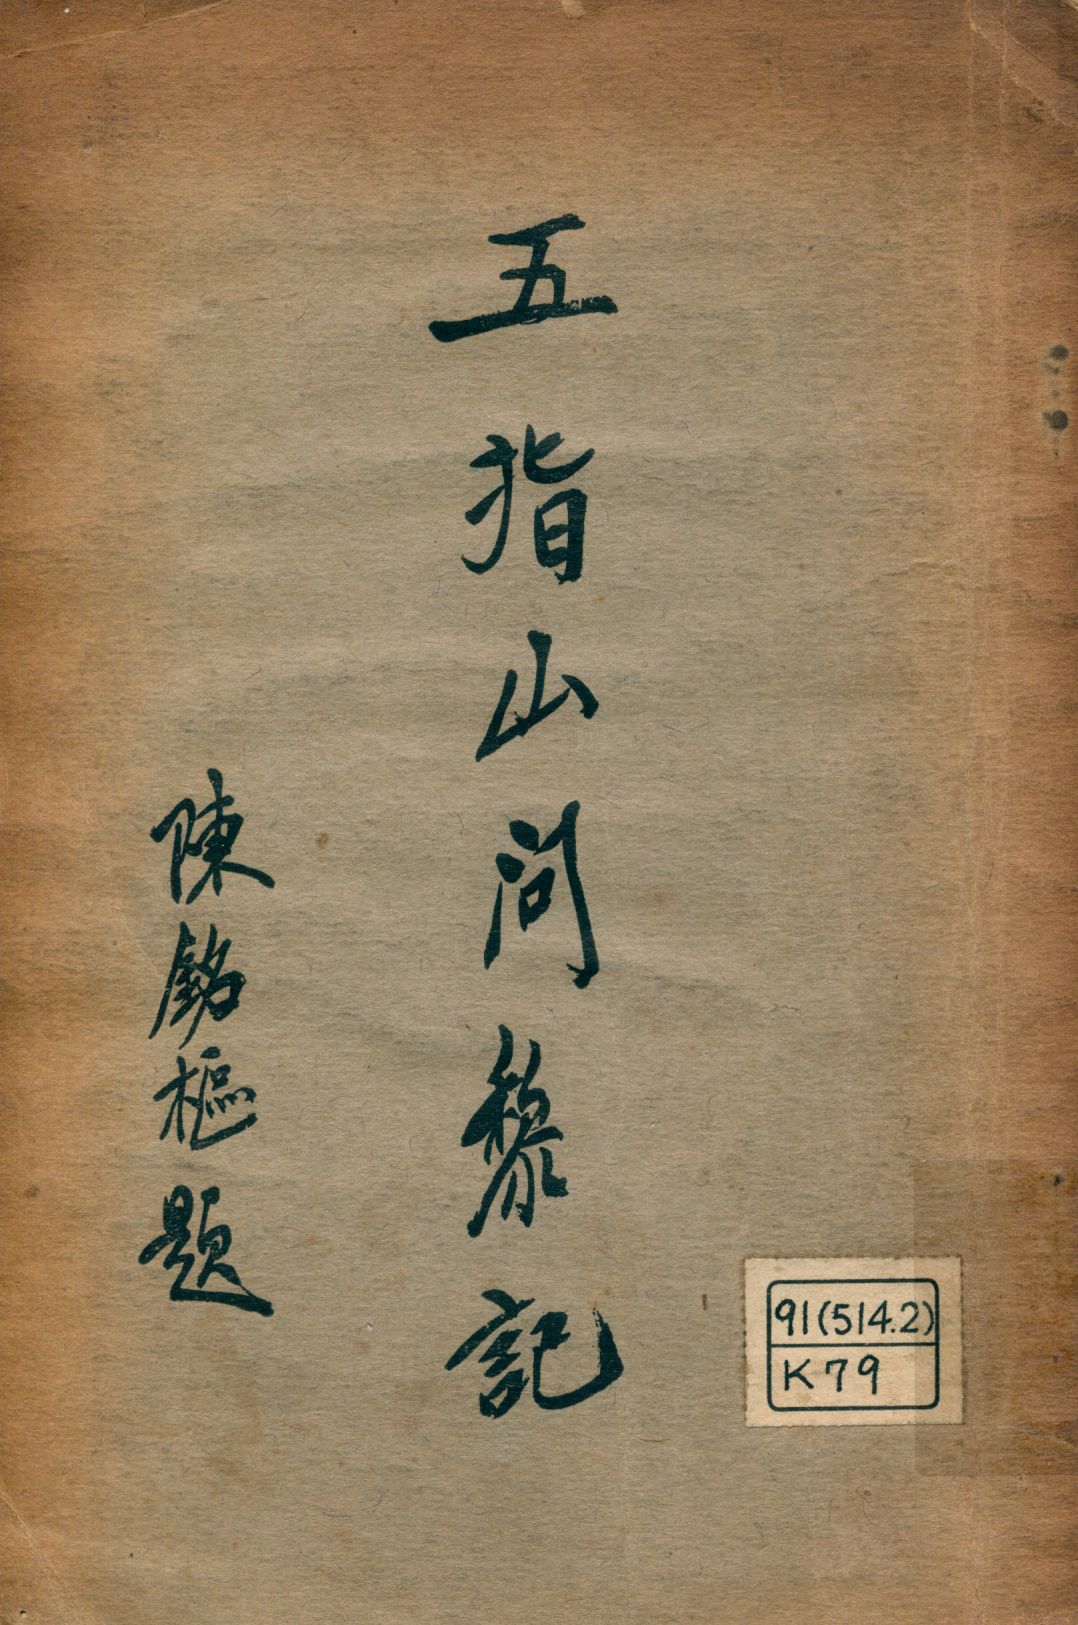 五指山问黎記
陳銘樞題
91(514.2)
K79